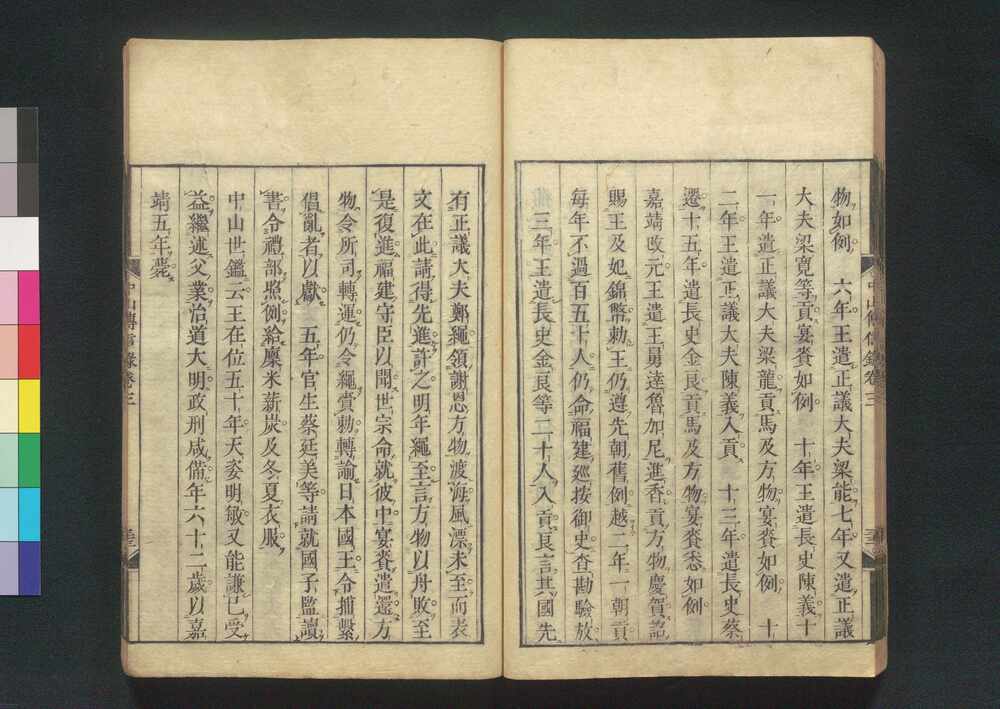 物如例　六年王遣正議大夫梁能七年又遣正議
大夫梁寛等貢宴賚如例　十年王遣長史陳義十
一年遣正議大夫梁龍貢馬及方物宴賚如例　十
二年王遣正議大夫陳義入貢　十三年遣長史蔡
遷十五年遣長史金良貢馬及方物宴賚悉如例
嘉靖改元王遣王舅達魯加尼進香貢方物慶賀詔
賜王及妃錦幣勅王仍遵先朝舊例越二年一朝貢
每年不過百五十人仍命福建廵按御史查勘驗放
三年王遣長史金良等二十人入貢良言其國先
中山傳信錄卷三
有正議大夫鄭繩領謝恩方物渡海風漂未至而表
文在此請得先進許之明年繩至言方物以舟敗至
是復進福建守臣以聞世宗命就彼中宴賚遣還方
物令所司轉運仍令繩賫勅轉諭日本國王令捕繫
倡亂者以獻　五年官生蔡廷美等請就國子監讀
書令禮部照例給廪米薪炭及冬夏衣服
中山世鑑云王在位五十年天姿明敏又能謙已受
益繼述父業治道大明政刑咸備年六十二歲以嘉
靖五年薨
中山傳信錄卷三